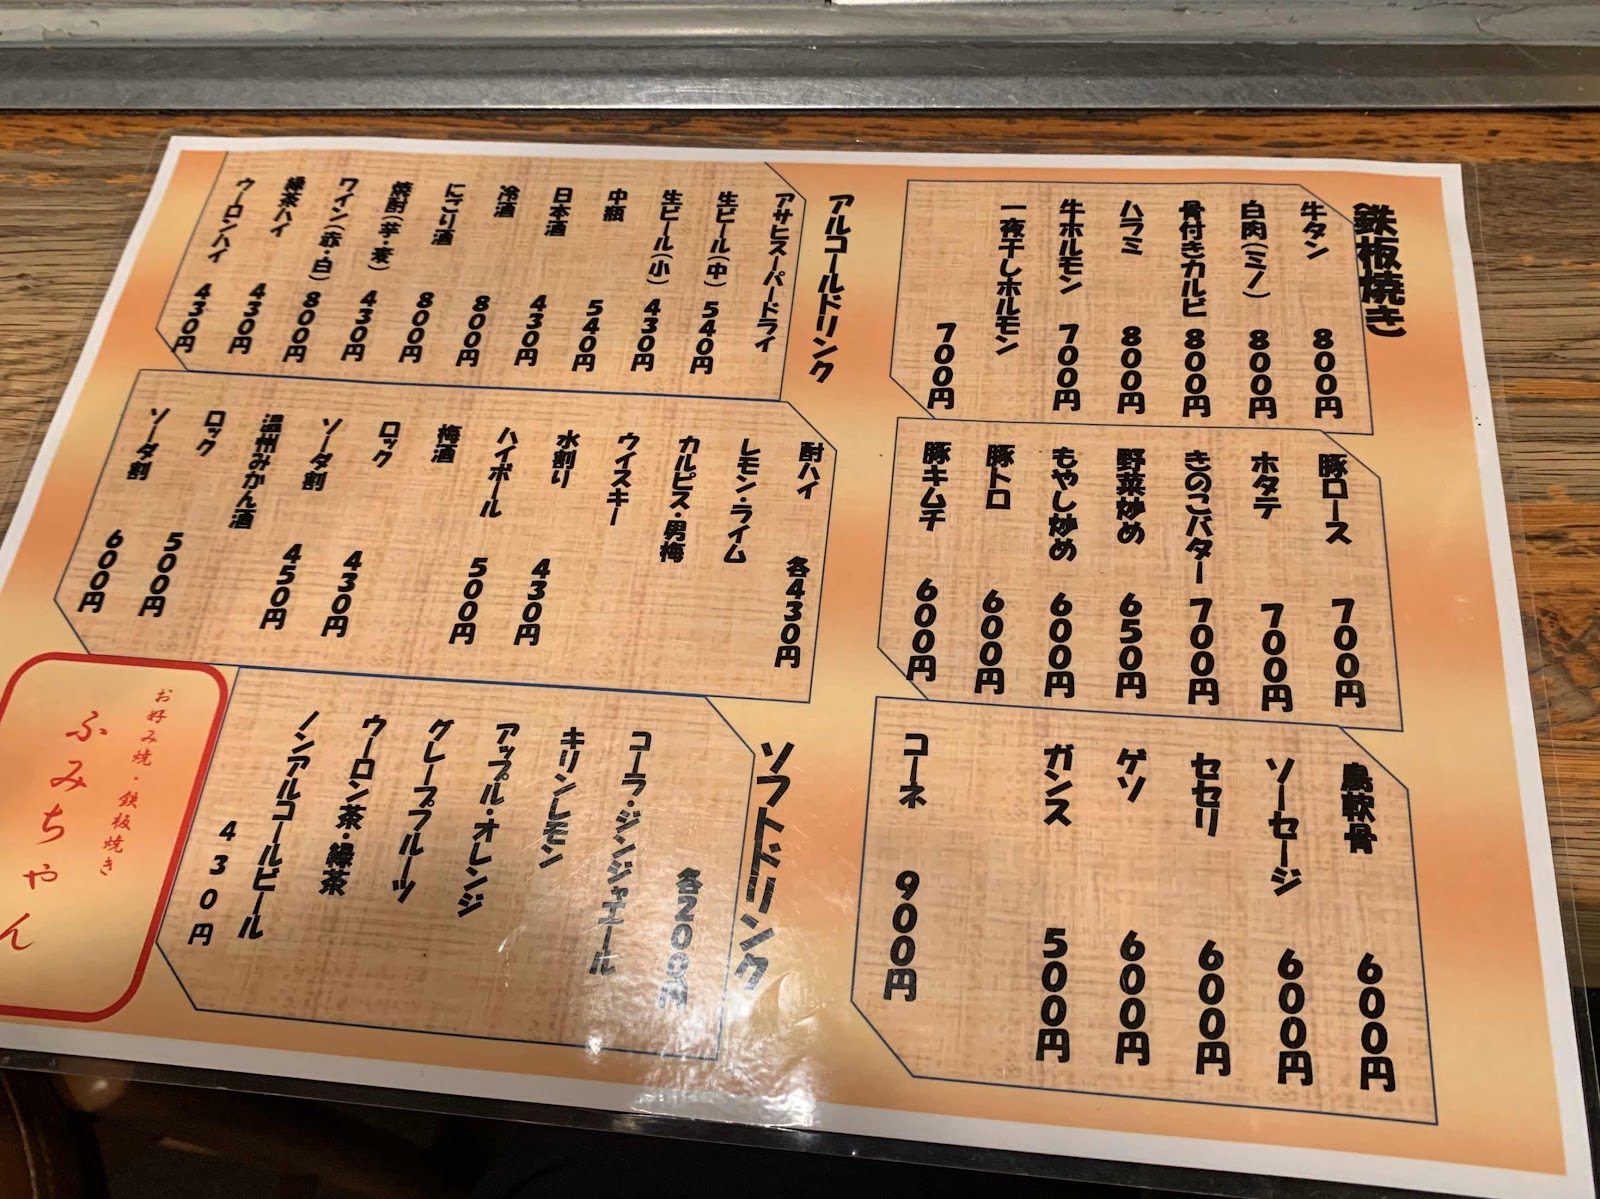 鉄板焼き
牛タン 800円
白肉(ミノ) 800円
骨付きカルビ 800円
ハラミ 800円
牛ホルモン 700円
一夜干しホルモン
700円
豚ロース 700円
ホタテ 700円
きのこバター 700円
野菜炒め 650円
もやし炒め 600円
豚トロ 600円
豚キムチ 600円
鳥軟骨 600円
ソーセージ 600円
セセリ 600円
ゲソ 600円
ガンス 500円
コーネ 900円
アルコールドリンク
アサヒスーパードライ
生ビール(中) 540円
生ビール(小) 430円
中瓶 540円
日本酒 430円
冷酒 800円
にごり酒 800円
焼酎(芋・麦) 430円
ワイン(赤・白) 800円
緑茶ハイ 430円
ウーロンハイ 430円
酎ハイ 各430円
レモン・ライム
カルピス・男梅
ウイスキー
水割り 430円
ハイボール 500円
梅酒
ロック 430円
ソーダ割 450円
温州みかん酒
ロック 500円
ソーダ割 600円
ソフトドリンク
各200円
コーラ・ジンジャエール
キリンレモン
アップル・オレンジ
グレープフルーツ
ウーロン茶・緑茶
ノンアルコールビール
430円
お好み焼・鉄板焼き
ふみちゃん